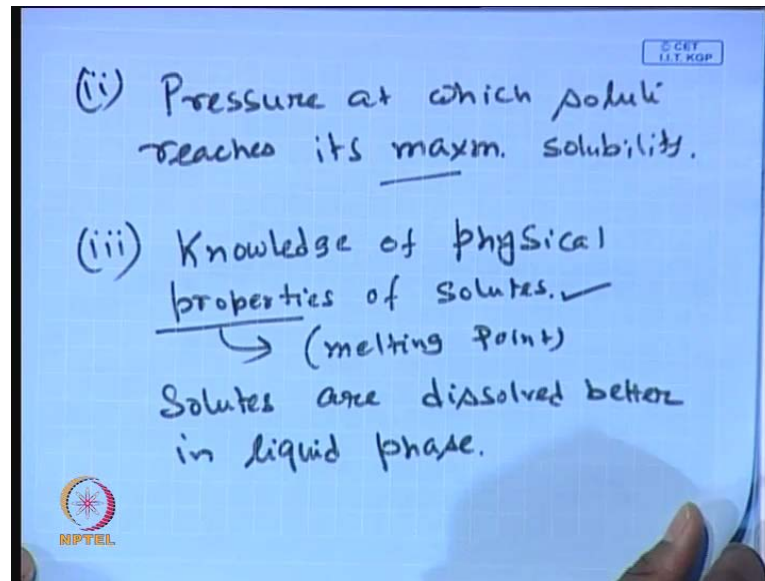 © CET
I.I.T. KGP
(ii) Pressure at which soluti
reaches its maxm. solubility.
(iii) Knowledge of physical
properties of solutes.
(melting Point)
Solutes are dissolved better
in liquid phase.
NPTEL